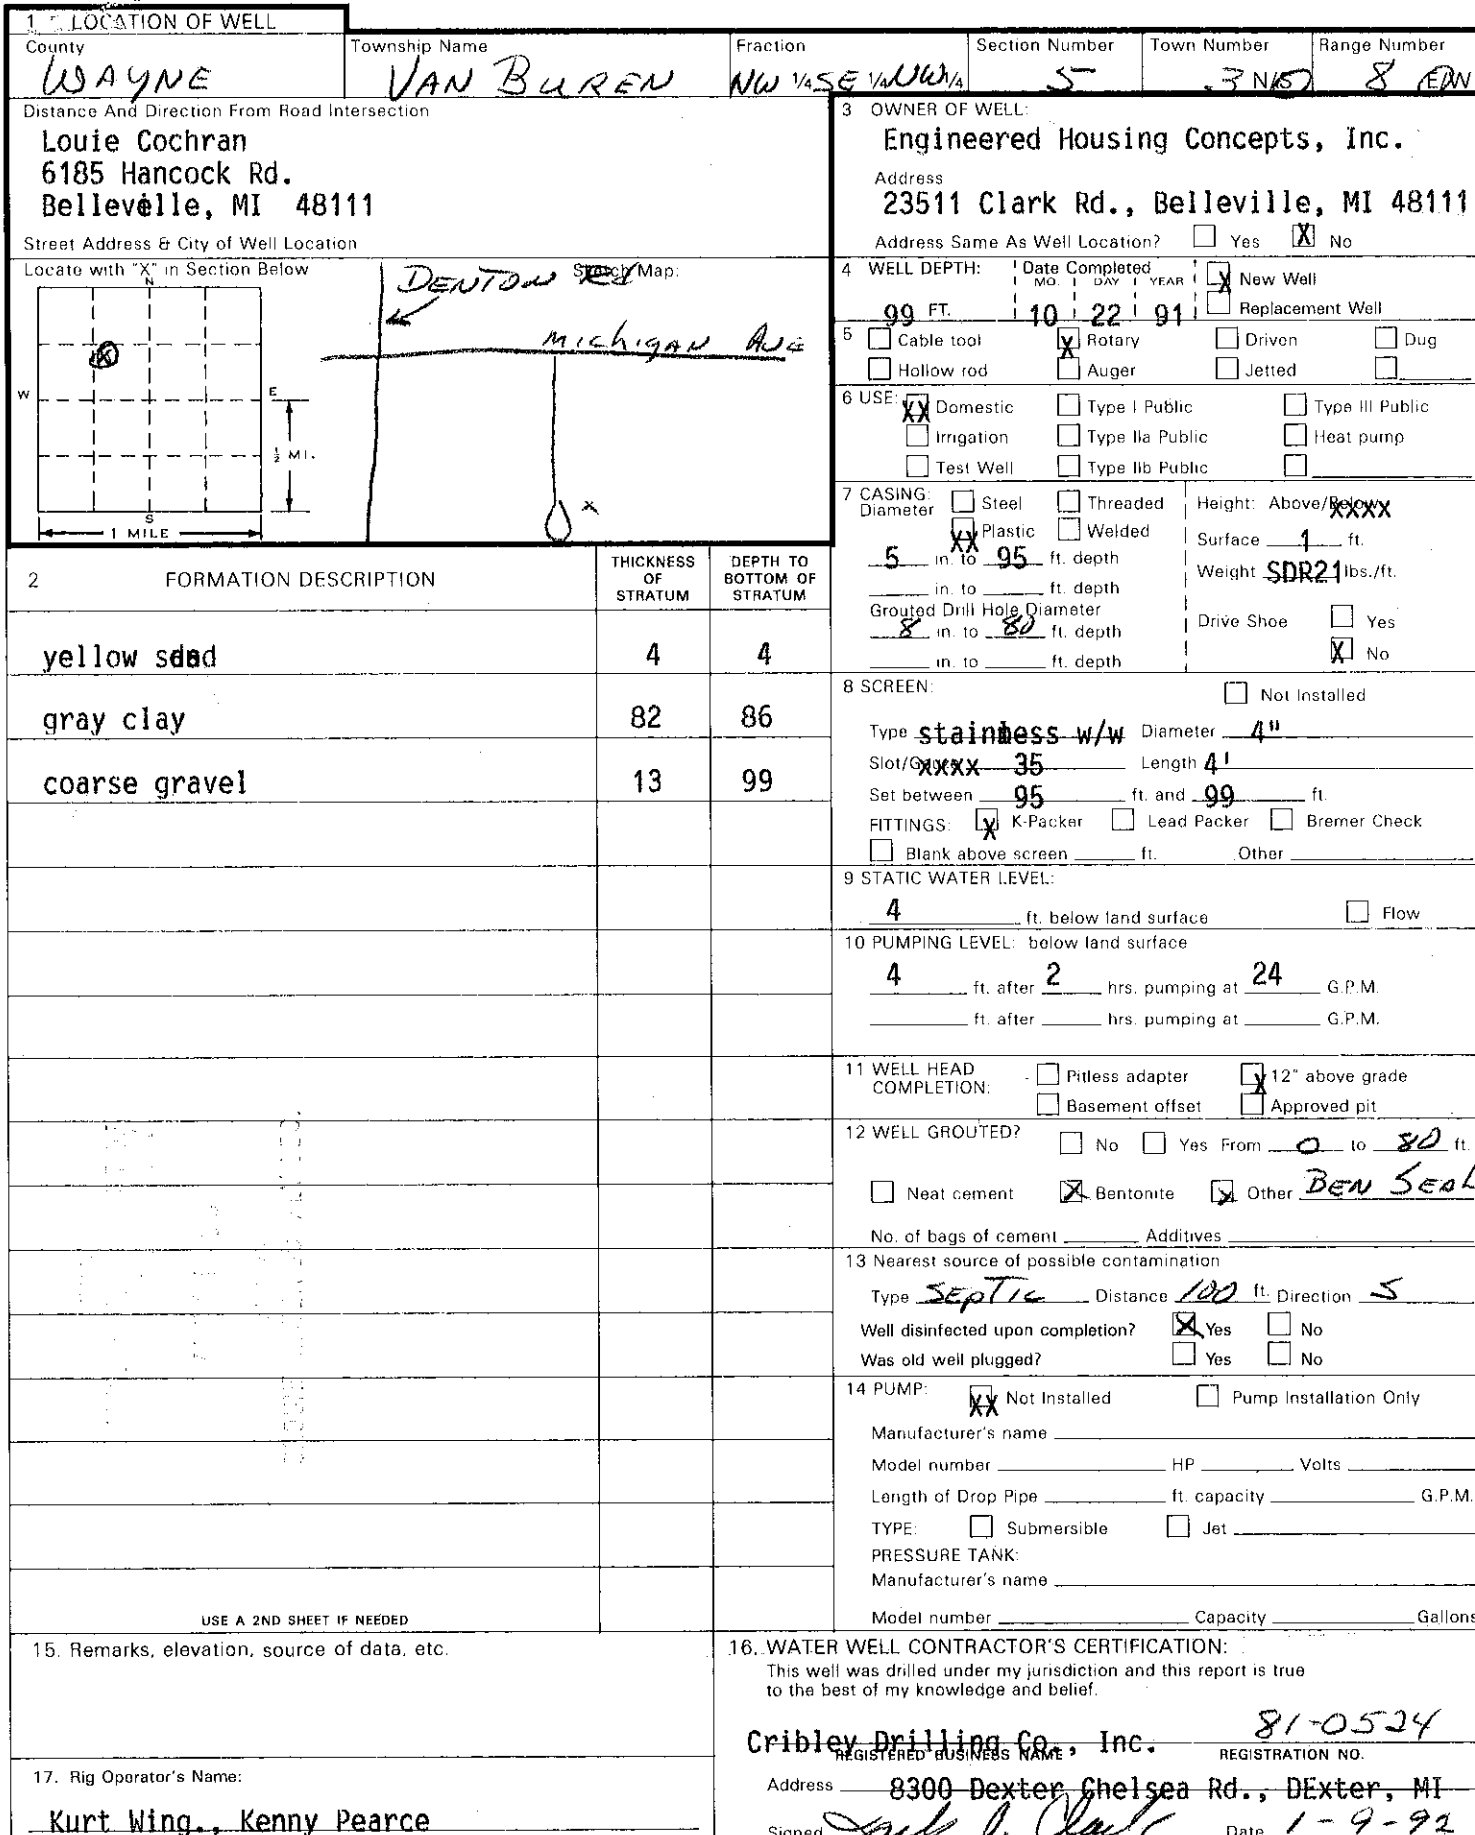 1 LOCATION OF WELL
County Township Name Fraction Section Number Town Number Range Number
WAYNE VAN BUREN NW 1/4 SE 1/4 NW 1/4 5 3 N/S 8 E/W
Distance And Direction From Road Intersection
Louie Cochran
6185 Hancock Rd.
Belleville, MI 48111
Street Address & City of Well Location
Locate with "X" in Section Below
N
X
W E
S
1/2 MI.
1 MILE
Sketch Map:
DENTON Rd
Michigan Ave
x
3 OWNER OF WELL:
Engineered Housing Concepts, Inc.
Address
23511 Clark Rd., Belleville, MI 48111
Address Same As Well Location? Yes X No
4 WELL DEPTH: Date Completed
MO. DAY YEAR
99 FT. 10 22 91
X New Well
Replacement Well
5 Cable tool X Rotary Driven Dug
Hollow rod Auger Jetted
6 USE: XX Domestic Type I Public Type III Public
Irrigation Type IIa Public Heat pump
Test Well Type IIb Public
7 CASING: Steel Threaded
Diameter XX Plastic Welded
5 in. to 95 ft. depth
in. to ft. depth
Grouted Drill Hole Diameter
8 in. to 80 ft. depth
in. to ft. depth
Height: Above/Below xxxx
Surface 1 ft.
Weight SDR21 lbs./ft.
Drive Shoe Yes
X No
2 FORMATION DESCRIPTION THICKNESS OF STRATUM DEPTH TO BOTTOM OF STRATUM
yellow sand 4 4
gray clay 82 86
coarse gravel 13 99
USE A 2ND SHEET IF NEEDED
8 SCREEN: Not Installed
Type stainless w/w Diameter 4"
Slot/Gauze xxxx 35 Length 4'
Set between 95 ft. and 99 ft.
FITTINGS: X K-Packer Lead Packer Bremer Check
Blank above screen ft. Other
9 STATIC WATER LEVEL:
4 ft. below land surface Flow
10 PUMPING LEVEL: below land surface
4 ft. after 2 hrs. pumping at 24 G.P.M.
ft. after hrs. pumping at G.P.M.
11 WELL HEAD COMPLETION: Pitless adapter X 12" above grade
Basement offset Approved pit
12 WELL GROUTED? No Yes From 0 to 80 ft.
Neat cement X Bentonite X Other BEN SEAL
No. of bags of cement Additives
13 Nearest source of possible contamination
Type SEPTIC Distance 100 ft. Direction S
Well disinfected upon completion? X Yes No
Was old well plugged? Yes No
14 PUMP: XX Not Installed Pump Installation Only
Manufacturer's name
Model number HP Volts
Length of Drop Pipe ft. capacity G.P.M.
TYPE: Submersible Jet
PRESSURE TANK:
Manufacturer's name
Model number Capacity Gallons
15. Remarks, elevation, source of data, etc.
17. Rig Operator's Name:
Kurt Wing., Kenny Pearce
16. WATER WELL CONTRACTOR'S CERTIFICATION:
This well was drilled under my jurisdiction and this report is true
to the best of my knowledge and belief.
Cribley Drilling Co., Inc. 81-0524
REGISTERED BUSINESS NAME REGISTRATION NO.
Address 8300 Dexter Chelsea Rd., DExter, MI
Signed Date 1-9-92